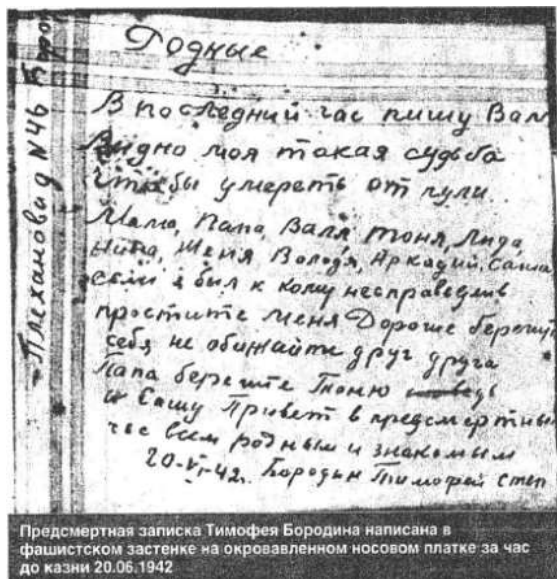 Плеханова д N46 Боро
Родные
В последний час пишу Вам
Видно моя такая судьба
Что бы умереть от пули
Мама, Папа, Валя Тоня, Лида,
Нина, Женя Володя, Аркадий, Саша
если я был к кому несправедлив
простите меня Дороже берегит
себя, не обижайте друг друга
Папа берегите Тоню
и Сашу Привет в предсмертный
час всем родным и знакомым
20-VI-42. Бородин Тимофей Степ
Предсмертная записка Тимофея Бородина написана в
фашистском застенке на окровавленном носовом платке за час
до казни 20.06.1942